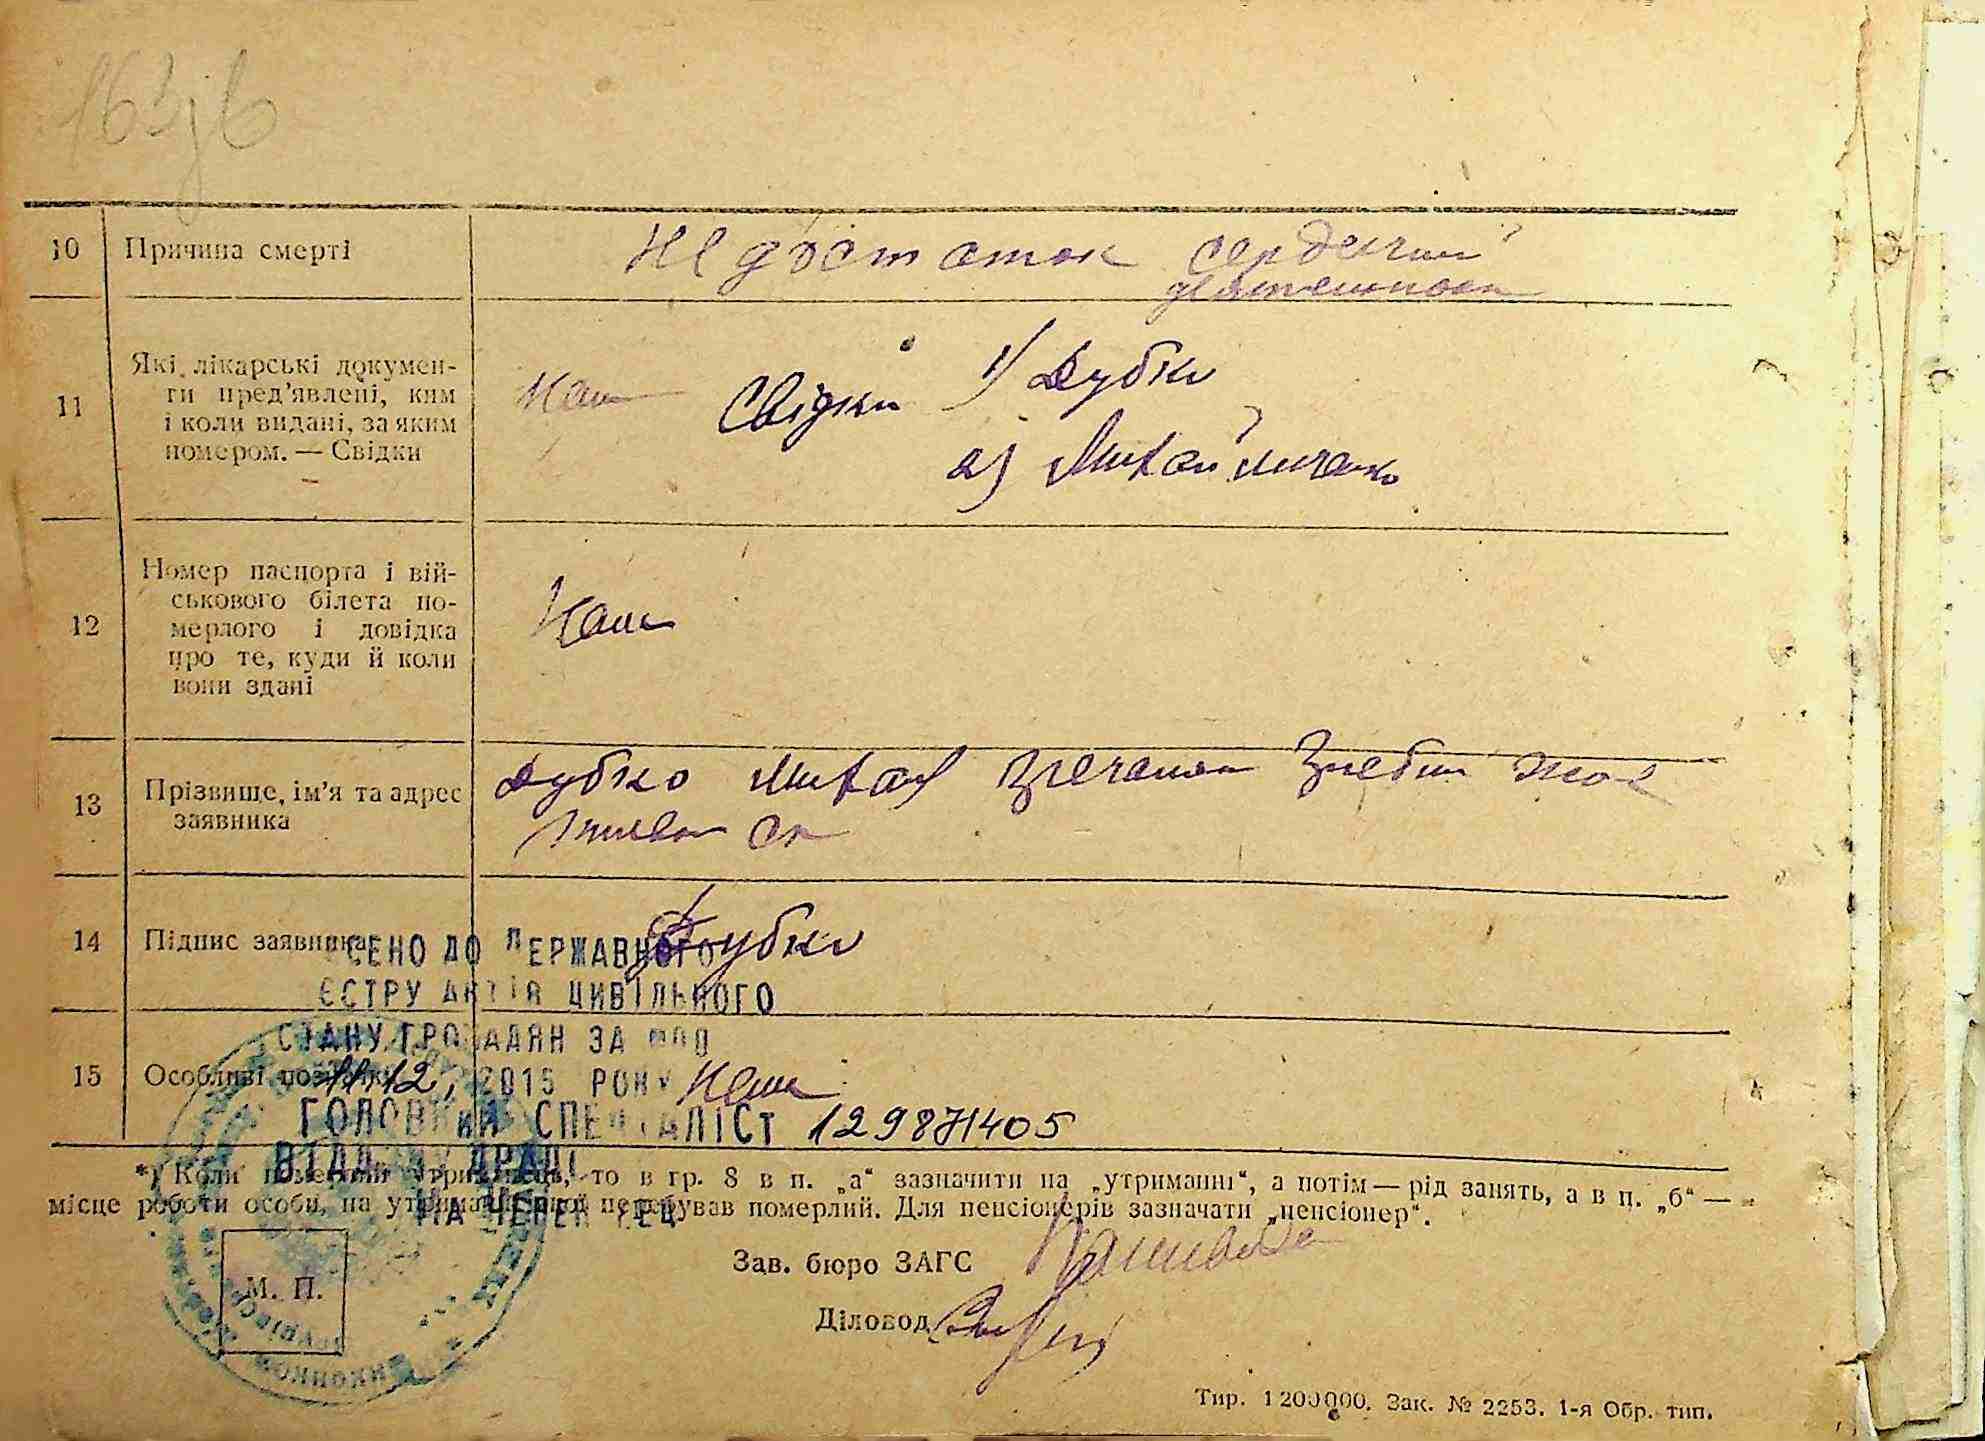 10 Причина смерті
Недостаток сердечний
деятельности
11 Які лікарські докумен-
ти пред'явлені, ким
і коли видані, за яким
номером. — Свідки
Свідки 1/ Дубко
2) Михайличенко
12 Номер паспорта і вій-
ськового білета по-
мерлого і довідка
про те, куди й коли
вони здані
13 Прізвище, ім'я та адрес
заявника
Дубко Михай
14 Підпис заявника
Дубко
СЕНО ДО ДЕРЖАВНОГО
ЄСТРУ АКТІВ ЦИВІЛЬНОГО
СТАНУ ГРОМАДЯН ЗА
15 Особливі позначки
11.12, 2015 РОКУ
ГОЛОВНИЙ СПЕЦІАЛІСТ 129871405
ВІДДІЛУ ДРАЦС
*) Коли померлий утриманець, то в гр. 8 в п. „а“ зазначити на „утриманні“, а потім — рід занять, а в п. „б“ —
місце роботи особи, на утриманні якої перебував померлий. Для пенсіонерів зазначати „пенсіонер“.
Зав. бюро ЗАГС
М. П.
Діловод
Тир. 1200000. Зак. № 2253. 1-я Обр. тип.